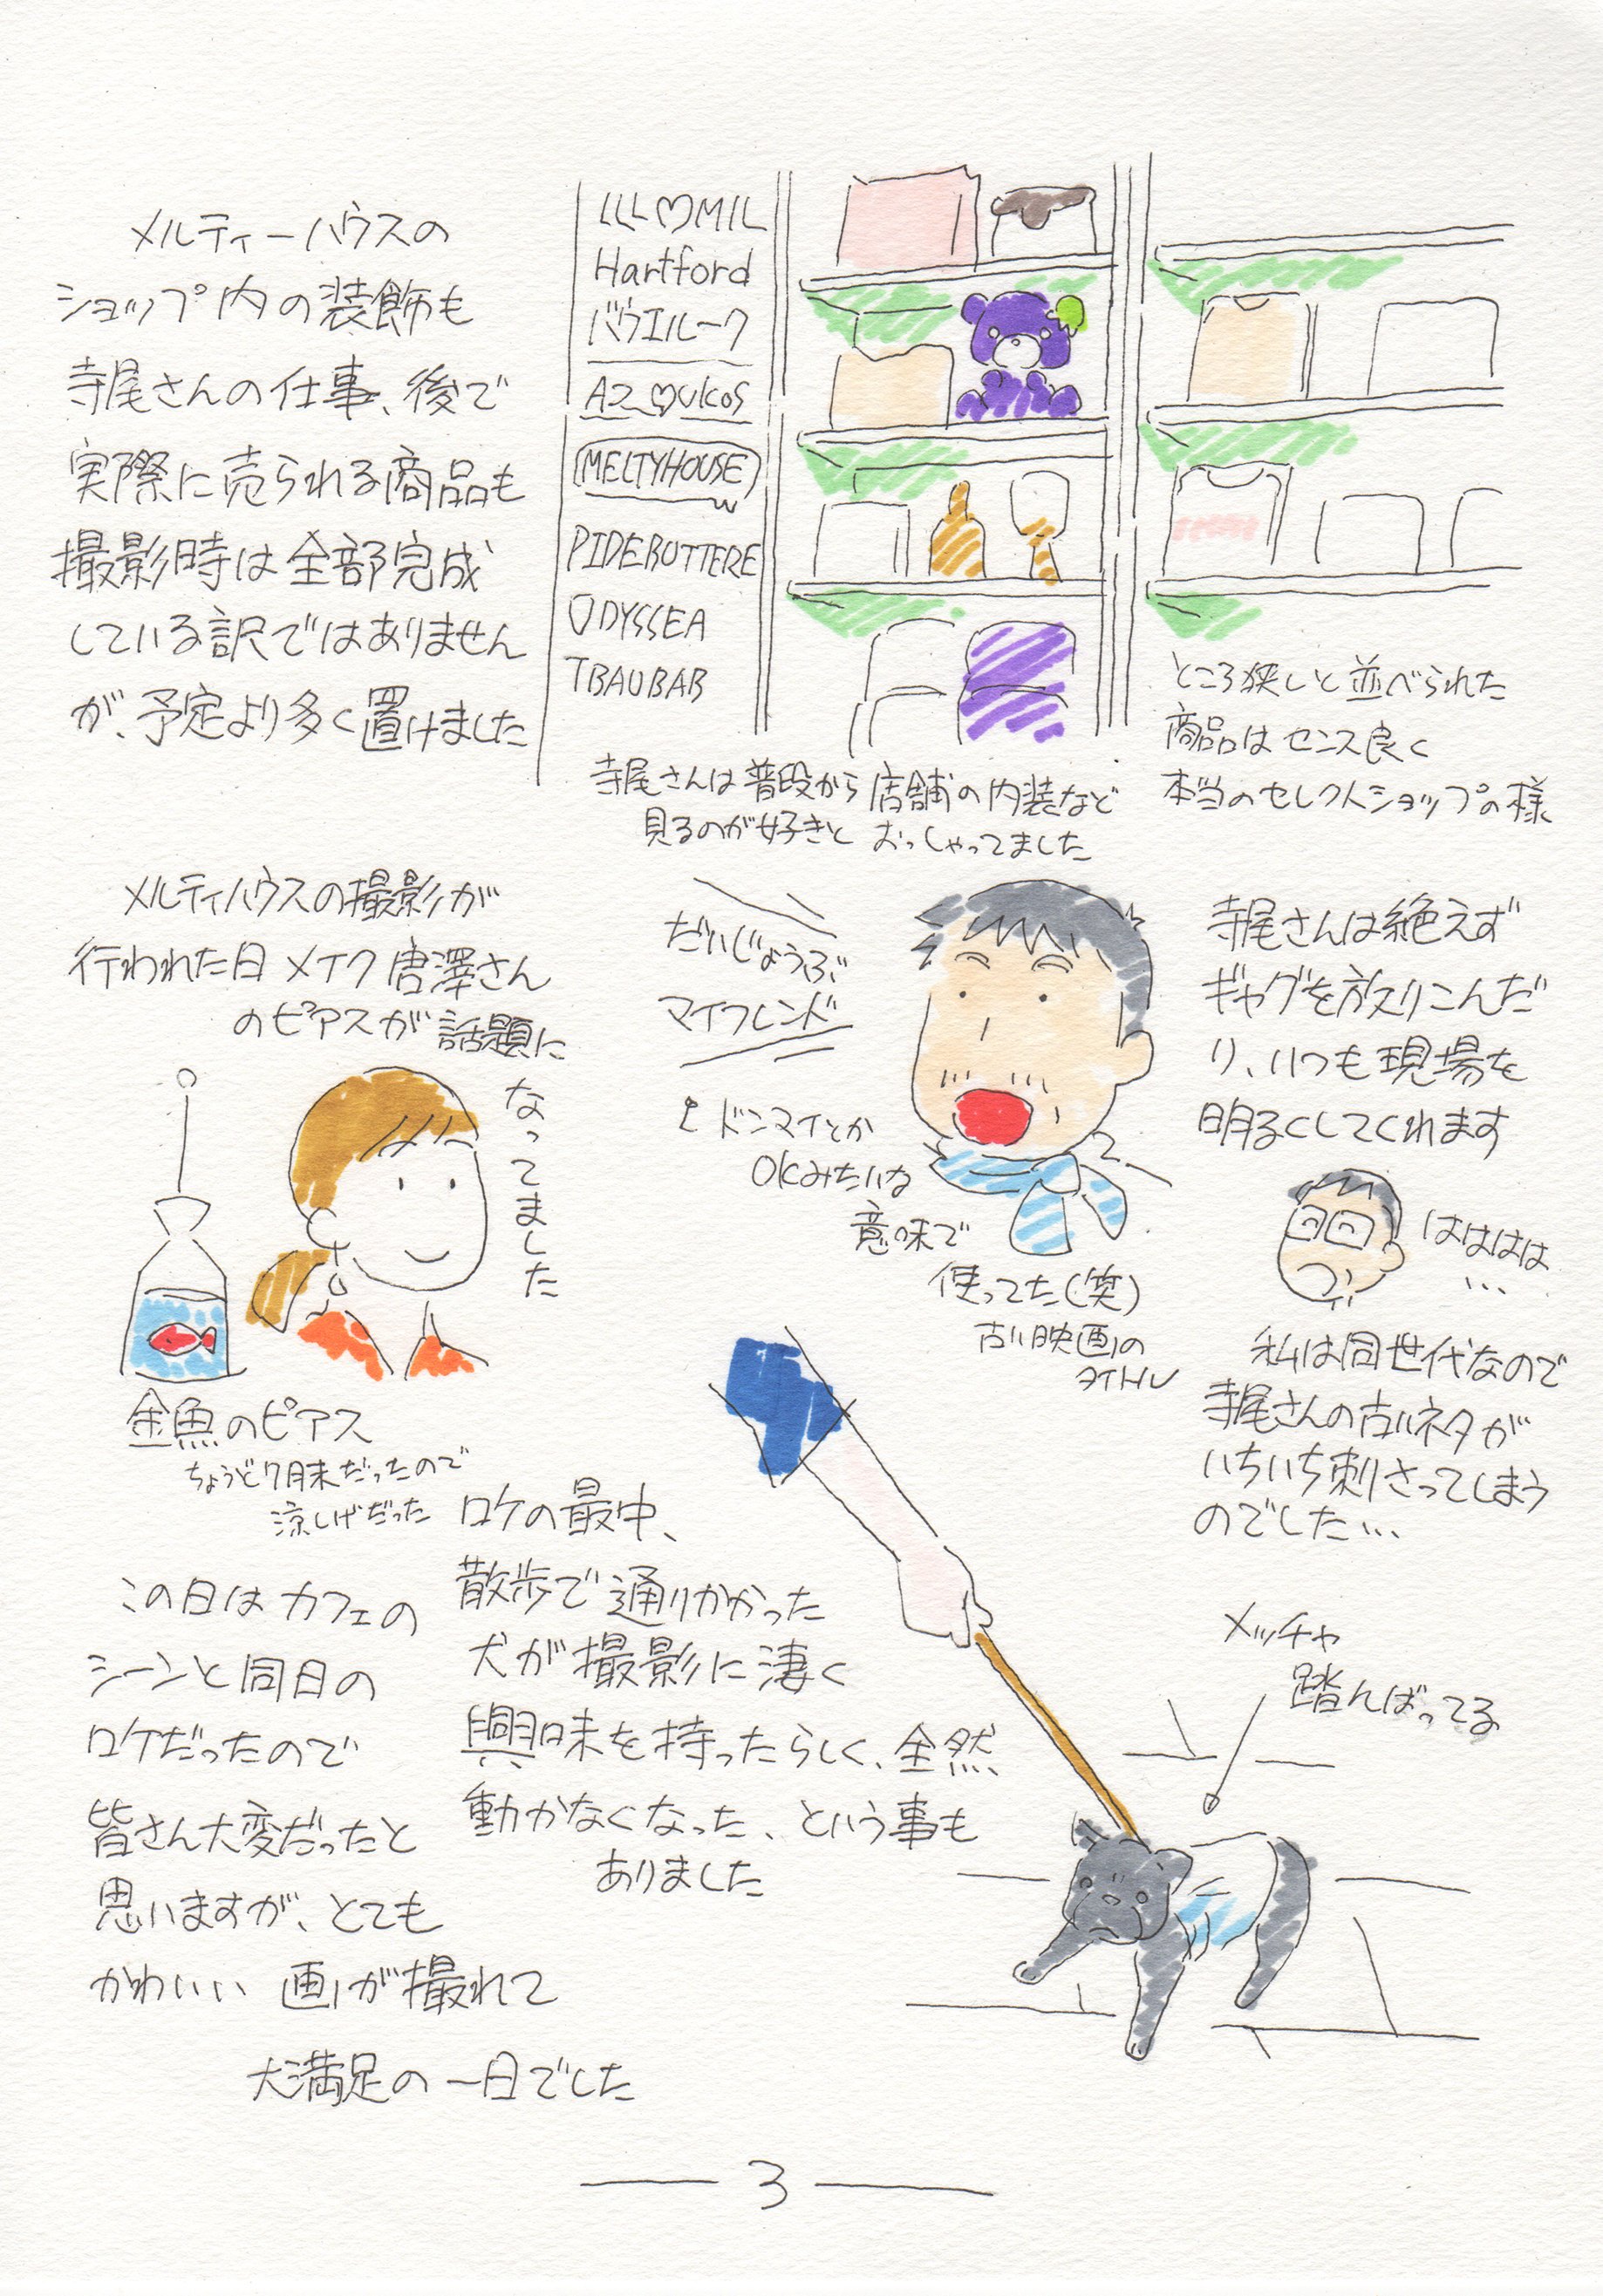 メルティーハウスの
ショップ内の装飾も
寺尾さんの仕事、後で
実際に売られる商品も
撮影時は全部完成
している訳ではありません
が、予定より多く置けました
LLL♡MIL
Hartford
バウエルーク
AZ♡UKOS
MELTYHOUSE
PIDEBUTTERE
ODYSSEA
TBAUBAB
寺尾さんは普段から店舗の内装など
見るのが好きと おっしゃってました
ところ狭しと並べられた
商品はセンス良く
本当のセレクトショップの様
メルティハウスの撮影が
行われた日 メイク唐澤さん
のピアスが話題に
なってました
金魚のピアス
ちょうど7月末だったので
涼しげだった
だいじょうぶ
マイフレンド
ドンマイとか
OKみたいな
意味で
使ってた(笑)
古い映画の
タイトル
寺尾さんは絶えず
ギャグを放りこんだ
り、いつも現場を
明るくしてくれます
はははは
…
私は同世代なので
寺尾さんの古いネタが
いちいち刺さってしまう
のでした…
この日はカフェの
シーンと同日の
ロケだったので
皆さん大変だったと
思いますが、とても
かわいい 画が撮れて
大満足の一日でした
ロケの最中、
散歩で通りかかった
犬が撮影に凄く
興味を持ったらしく、全然
動かなくなった、という事も
ありました
メッチャ
踏んばってる
3